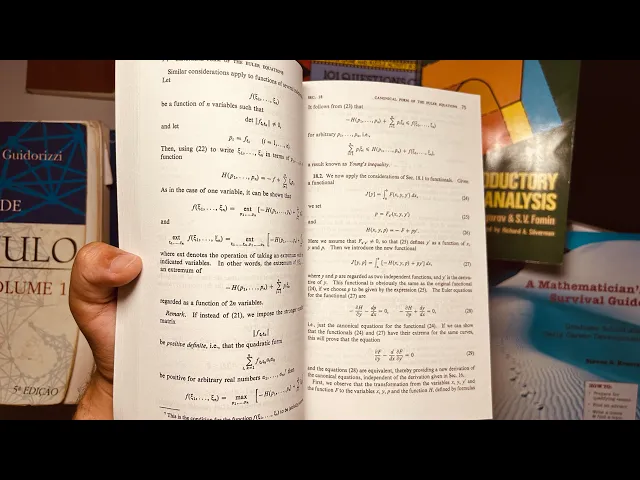 CANONICAL FORM OF THE EULER EQUATIONS
Similar considerations apply to functions of several
Let
f(ξ₁, ..., ξₙ)
be a function of n variables such that
det ‖f_{ξᵢξₖ}‖ ≠ 0,
and let
pᵢ = f_{ξᵢ} (i = 1, ...,
Then, using (22) to write ξ₁, ..., ξₙ in terms of p₁,
function
H(p₁, ..., pₙ) = −f +
As in the case of one variable, it can be shown that
f(ξ₁, ..., ξₙ) = ext [−H(p₁, ..., pₙ) +
p₁, ..., pₙ
and
ext f(ξ₁, ..., ξₙ) = ext [−H(p₁, ..., pₙ) +
where ext denotes the operation of taking an extremum
indicated variables. In other words, the extremum of
an extremum of
−H(p₁, ..., pₙ) + Σ pᵢξᵢ
regarded as a function of 2n variables.
Remark. If instead of (21), we impose the stronger
matrix
‖f_{ξᵢξₖ}‖
be positive definite, i.e., that the quadratic form
Σ f_{ξᵢξₖ}αᵢαₖ
be positive for arbitrary real numbers α₁, ..., αₙ, then
f(ξ₁, ..., ξₙ) = max [−H(p₁, ..., pₙ) +
p₁, ..., pₙ
This is the condition for the function f(ξ₁, ..., ξₙ) to be
SEC. 18 CANONICAL FORM OF THE EULER EQUATIONS 75
It follows from (23) that
−H(p₁, ..., pₙ) + Σ pᵢξᵢ ≤ f(ξ₁, ..., ξₙ)
for arbitrary p₁, ..., pₙ, i.e.,
Σ pᵢξᵢ ≤ H(p₁, ..., pₙ) + f(ξ₁, ..., ξₙ),
a result known as Young's inequality.
18.2. We now apply the considerations of Sec. 18.1 to functionals. Given
a functional
J[y] = ∫ F(x, y, y′) dx, (24)
we set
p = F_{y′}(x, y, y′) (25)
and
H(x, y, p) = −F + py′. (26)
Here we assume that F_{y′y′} ≠ 0, so that (25) defines y′ as a function of x,
y and p. Then we introduce the new functional
J[y, p] = ∫ [−H(x, y, p) + py′] dx, (27)
where y and p are regarded as two independent functions, and y′ is the
tive of y. This functional is obviously the same as the original functional
(24), if we choose p to be given by the expression (25). The Euler equations
for the functional (27) are
−∂H/∂y − dp/dx = 0, −∂H/∂p + dy/dx = 0, (28)
i.e., just the canonical equations for the functional (24). If we can show that
the functionals (24) and (27) have their extrema for the same curves,
this will prove that the equation
∂F/∂y − d/dx ∂F/∂y′ = 0 (29)
and the equations (28) are equivalent, thereby providing a new derivation of
the canonical equations, independent of the derivation given in Sec. 16.
First, we observe that the transformation from the variables x, y, y′ and
the function F to the variables x, y, p and the function H, defined by formulas
Guidorizzi
DE
ULO
VOLUME 1
5ª EDIÇÃO
101 QUESTIONS
DUCTORY
ANALYSIS
& S.V. Fomin
by Richard A. Silverman
A Mathematician's
Survival Guide
HOW TO: